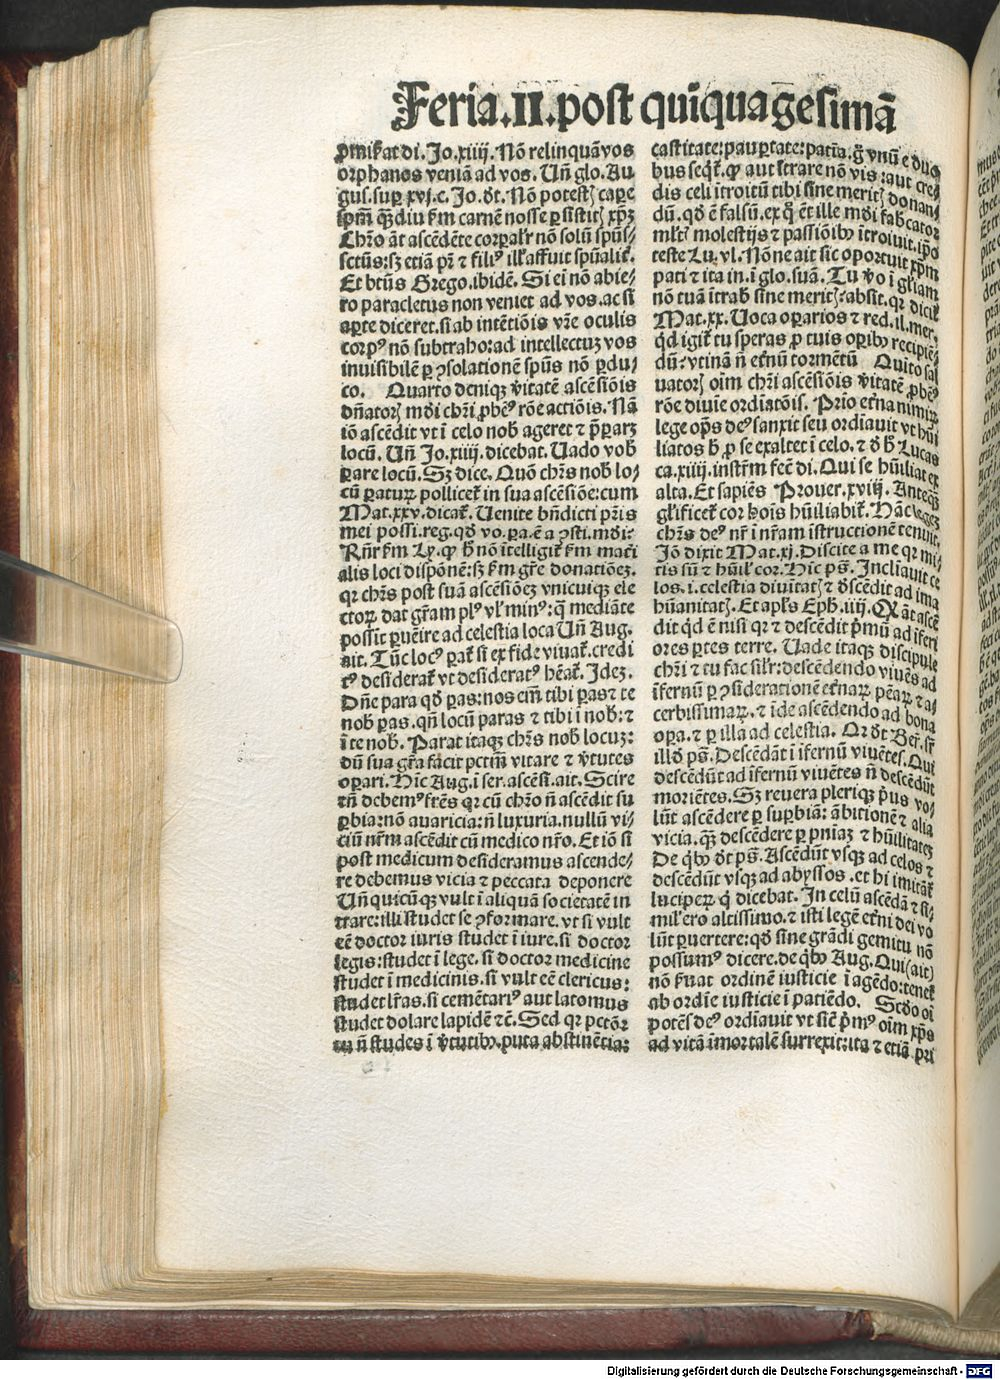 Feria.II.post quīquagesimā
ꝓmiẜat di. Jo.xiiij. Nō relinquā vos
orphanos veniā ad vos. Uñ glo. Au
gus. suꝑ xvj.c. Jo. ꝺt. Nō potestꝭ caꝑe
spm̄ qꝙdiu ẜm carnē nosse ꝑsistitꝭ xpꝫ
Chr̄o āt ascēdēte corpalr̄ nō solū spūs⸗
sctūs:sꝫ etiā pr̄ ⁊ filiꝰ illꝭ affuit spūalit̄.
Et btūs Grego. ibidē. Si ei nō abie⸗
ro paracletus non veniet ad vos. ac si
aꝑte diceret. si ab intētiōis vr̄e oculis
corpꝰ nō subtraho:ad intellectuꝫ vos
inuisibilē ꝑ ꝯsolationē spūs nō ꝑdu⸗
co. Quarto deniqꝫ v̄itatē ascēsiōis
dn̄atorꝭ mōi chr̄i ꝓbēꝰ rōe actiōis. Nā
iō ascēdit vt i celo nob̄ ageret ⁊ p̄ꝑarꝫ
locū. Uñ Jo.xiiij. dicebat. Uado vob̄
ꝑare locū. Sꝫ dice. Quō chr̄s nob̄ lo⸗
cū ꝑaturꝝ pollicet̄ in sua ascēsiōe:cum
Mat.xxv.dicat̄. Uenite bn̄dicti pr̄is
mei possi. reg. qd̄ vo. ꝑa. ē a ꝯsti. mōi:
Rn̄r ẜm Ly. ꝙ h̄ nō itelligit̄ ẜm mat̄i
alis loci dispōnē:sꝫ ẜm gr̄e donatiōeꝫ.
qꝛ chr̄s post suā ascēsiōeꝫ vnicuiqꝫ ele
ctorꝝ dat gr̄am plꝰ vl̄ minꝰ:q̄ mediāte
possit ꝑuēire ad celestia loca Uñ Aug.
ait. Tūc locꝰ ꝑat̄ si ex fide viuat̄. credi
tꝰ desiderat̄ vt desideratꝰ hēat̄. Jdeꝫ.
Dn̄e para qd̄ ꝑas:nos em̄ tibi ꝑas ⁊ te
nob̄ ꝑas. qn̄ locū paras ⁊ tibi i nob̄:⁊
i te nob̄. Parat itaqꝫ chr̄s nob̄ locuꝫ:
dū sua gr̄a facit pctm̄ vitare ⁊ v̄tutes
oꝑari. Hic Aug. i ser. ascēsi. ait. Scire
tn̄ debemꝰ fr̄es qꝛ cū chr̄o n̄ ascēdit su
ꝑbia:nō auaricia:n̄ luxuria.nullū vi⸗
ciū nr̄m ascēdit cū medico nr̄o. Et iō si
post medicum desideramus ascende⸗
re debemus vicia ⁊ peccata deponere
Uñ quicūqꝫ vult i aliquā societatē in
trare:illi studet se ꝯformare. vt si vult
eē doctor iuris studet i iure. si doctor
legis:studet i lege. si doctor medicine
studet i medicinis. si vult eē clericus:
studet lr̄as. si cemētariꝰ aut latomus
studet dolare lapidē ⁊c̄. Sed qꝛ pctōr
tu n̄ studes i v̄tutibꝰ. puta abstinētia:
castitate:pauꝑtate:patiā. g̊ vnū e duo
bus seqt̄. ꝙ aut itrare nō vis:aut cre⸗
dis celi itroitū tibi sine meritꝭ donan⸗
dū. qd̄ ē falsū. ex quo et ille mōi fabricator
ml̄tꝭ molestijs ⁊ passiōibꝰ itroiuit. ip̄o
teste Lu. vl. Nōne ait sic oportuit xp̄m
pati ⁊ ita in. i glo. suā. Tu v̄o i gl̄iam
nō tuā itrab̄ sine meritꝭ:absit. qꝛ dicit̄
Mat.xx. Uoca oꝑarios ⁊ red. il. mer.
qd̄ igit̄ tu speras ꝓ tuis oꝑibꝰ recipiē⸗
dū:vtinā n̄ et̄nū tormētū Quito sal
uatorꝭ oim chr̄i ascēsiōis v̄itatē ꝓbēꝰ
rōe diuie ordiatōis. Prio et̄na nimiꝝ
lege op̄s deꝰ sanxit seu ordiauit vt hūi
liatos h̄ ꝓ se exaltet i celo. ⁊ ꝺ h̄ Lucas
ca.xiiij. instr̄m fec̄ di. Qui se hūiliat ex
alta. Et sapiēs Prouer.xviij. Anteqꝙ
gl̄ificet̄ cor hoīs hūiliabit̄. Hāc legeꝫ
chr̄s deꝰ nr̄ i nr̄am istructionē tenuit.
Jō dixit Mat.xj. Discite a me qꝛ mi⸗
tis sū ⁊ hūil̄ cor. Hic ps̄. Jncliauit ce
los. i. celestia diuitatꝭ ⁊ ꝺscēdit ad ima
hūanitatꝭ. Et apl̄s Eph.iiij. Qꝺ āt ascē
dit qd̄ ē nisi qꝛ ⁊ descēdit p̄mū ad iferi
ores ꝑtes terre. Uade itaqꝫ discipule
chr̄i ⁊ tu fac sil̄r:descēdendo viuēs ad
īfernū ꝑ ꝯsiderationē et̄naꝝ pēaꝝ ⁊ a⸗
cerbissimaꝝ. ⁊ ide ascēdendo ad bona
oꝑa. ⁊ ꝑ illa ad celestia. Qꝺ ꝺt Ber. sr̄
illd̄ ps̄. Descēdāt i ifernū viuētes. Qui
descēdūt ad īfernū viuētes n̄ descēdūt
moriētes. Sꝫ reuera pleriqꝫ p̄us vo⸗
lūt ascēdere ꝑ suꝑbiā: ābitionē ⁊ alia
vicia. qꝙ descēdere ꝑ pn̄iaꝫ ⁊ hūilitateꝫ
De qb̄ꝰ ꝺt ps̄. Ascēdūt vsqꝫ ad celos ⁊
descēdūt vsqꝫ ad abyssos. et hi imitāt̄
luciperꝝ q̄ dicebat. In celū ascēdā ⁊ si⸗
mil̄ ero altissimo. ⁊ isti legē et̄ni dei vo
lūt ꝑuertere:qd̄ sine grādi gemitu nō
possumꝰ dicere. de qb̄ꝰ Aug. Qui(ait)
nō ẜuat ordinē iusticie i agēdo:tenet̄
ab ordīe iusticie i patiēdo. Scd̄o oī
potēs deꝰ ordiauit vt sic̄ p̄mꝰ oim xp̄s
ad vitā imortalē surrexit:ita ⁊ etiā pri
Digitalisierung gefördert durch die Deutsche Forschungsgemeinschaft - DFG